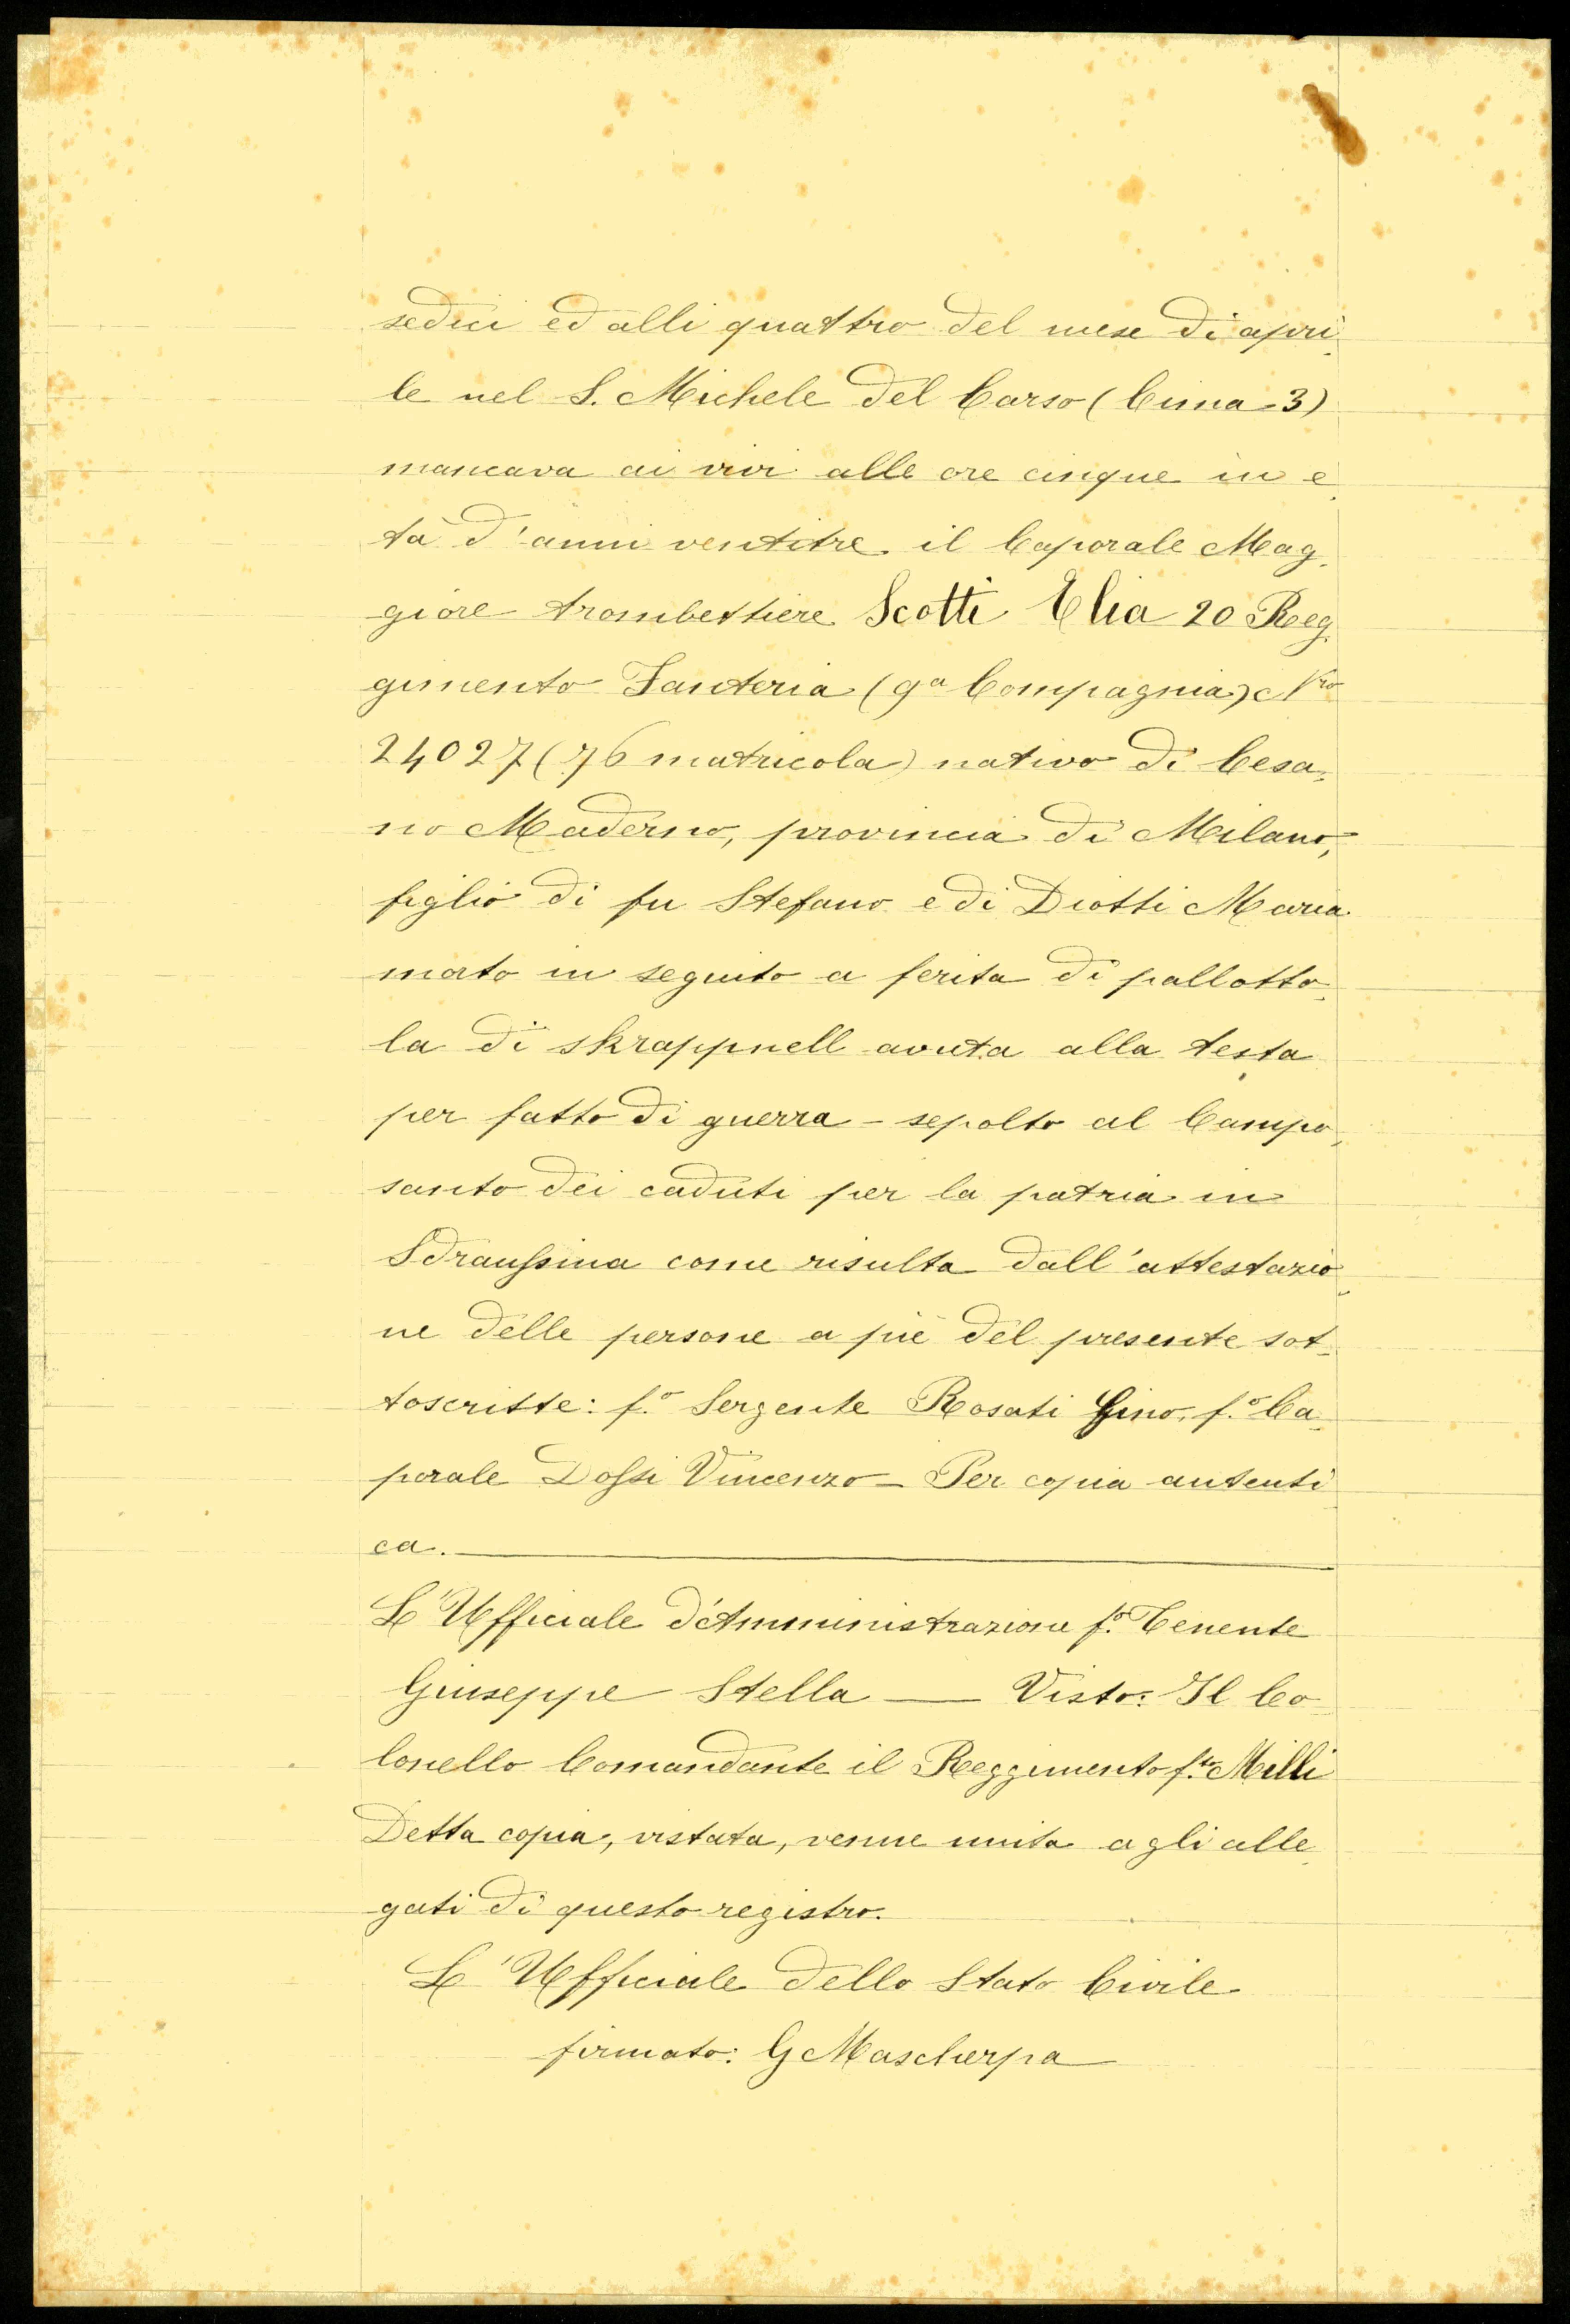 sedici ed alli quattro del mese di apri
le nel S. Michele del Carso (Cima 3)
mancava ai vivi alle ore cinque in e
tà d'anni ventitre il Caporale Mag
giore trombettiere Scotti Elia 20 Reg
gimento Fanteria (9a Compagnia) Nro
24027 (76 matricola) nativo di Cesa
no Maderno, provincia di Milano,
figlio di fu Stefano e di Diotti Maria
morto in seguito a ferita di pallotto
la di skrappnell avuta alla testa
per fatto di guerra - sepolto al Campo
santo dei caduti per la patria in
Sdraussina come risulta dall'attestazio
ne delle persone a piè del presente sot
toscritte: f.o Sergente Rosati Gino, f.o Ca
porale Dossi Vincenzo - Per copia autenti
ca.
L'Ufficiale d'Amministrazione f.o Tenente
Giuseppe Stella — Visto: Il Co
lonello Comandante il Reggimento f.to Milli
Detta copia, vistata, venne unita agli alle
gati di questo registro.
L'Ufficiale dello Stato Civile
firmato: G Mascherpa